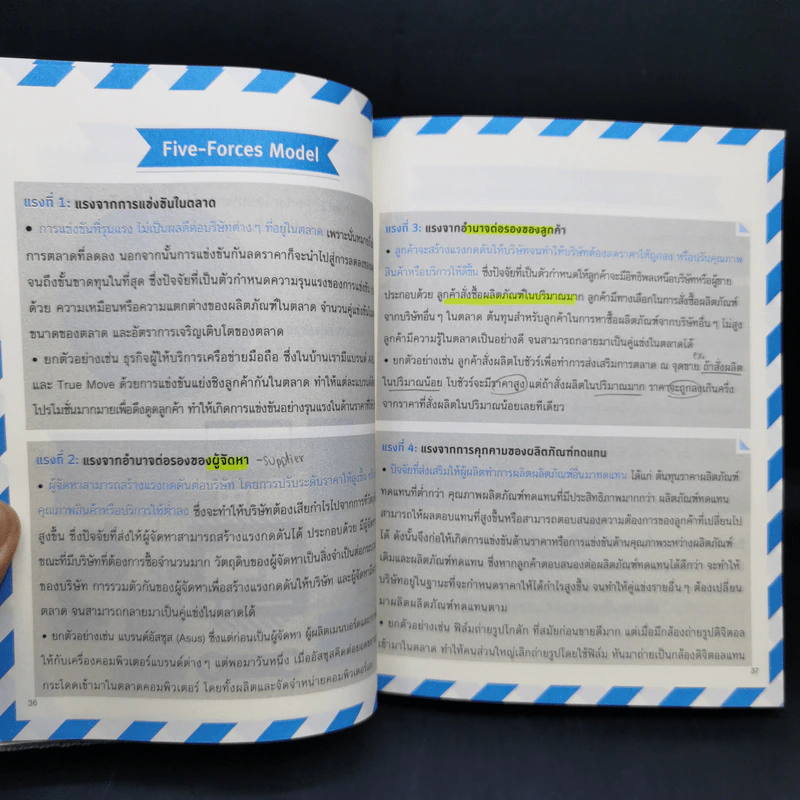 Five-Forces Model
แรงที่ 1: แรงจากการแข่งขันในตลาด
• การแข่งขันที่รุนแรง ไม่เป็นผลดีต่อบริษัทต่าง ๆ ที่อยู่ในตลาด เพราะนั่นหมายถึง
การตลาดที่ลดลง นอกจากนั้นการแข่งขันกันลดราคาก็จะนำไปสู่การลดลงของ
จนถึงขั้นขาดทุนในที่สุด ซึ่งปัจจัยที่เป็นตัวกำหนดความรุนแรงของการแข่งขัน
ด้วย ความเหมือนหรือความแตกต่างของผลิตภัณฑ์ในตลาด จำนวนคู่แข่งขันใน
ขนาดของตลาด และอัตราการเจริญเติบโตของตลาด
• ยกตัวอย่างเช่น ธุรกิจผู้ให้บริการเครือข่ายมือถือ ซึ่งในบ้านเรามีแบรนด์
และ True Move ด้วยการแข่งขันแย่งชิงลูกค้ากันในตลาด ทำให้แต่ละแบรนด์
โปรโมชั่นมากมายเพื่อดึงดูดลูกค้า ทำให้เกิดการแข่งขันอย่างรุนแรงในด้านราคาที่
แรงที่ 2: แรงจากอำนาจต่อรองของผู้จัดหา -supplier
• ผู้จัดหาสามารถสร้างแรงกดดันต่อบริษัท โดยการปรับระดับราคาให้สูงขึ้น
คุณภาพสินค้าหรือบริการให้ต่ำลง ซึ่งจะทำให้บริษัทต้องเสียกำไรไปจากการที่
สูงขึ้น ซึ่งปัจจัยที่ส่งให้ผู้จัดหาสามารถสร้างแรงกดดันได้ ประกอบด้วย มีผู้จัด
ขณะที่มีบริษัทที่ต้องการซื้อจำนวนมาก วัตถุดิบของผู้จัดหาเป็นสิ่งจำเป็นต่อ
ของบริษัท การรวมตัวกันของผู้จัดหาเพื่อสร้างแรงกดดันให้บริษัท และผู้จัดหามี
ตลาด จนสามารถกลายมาเป็นคู่แข่งในตลาดได้
• ยกตัวอย่างเช่น แบรนด์อัสซุส (Asus) ซึ่งแต่ก่อนเป็นผู้จัดหา ผู้ผลิตเมนบอร์ดและ
ให้กับเครื่องคอมพิวเตอร์แบรนด์ต่าง ๆ แต่พอมาวันหนึ่ง เมื่ออัสซุสคิดต่อยอด
กระโดดเข้ามาในตลาดคอมพิวเตอร์ โดยทั้งผลิตและจัดจำหน่ายคอมพิวเตอร์
36
แรงที่ 3: แรงจากอำนาจต่อรองของลูกค้า
• ลูกค้าจะสร้างแรงกดดันให้บริษัทจนทำให้บริษัทต้องลดราคาให้ถูกลง หรือปรับคุณภาพ
สินค้าหรือบริการให้ดีขึ้น ซึ่งปัจจัยที่เป็นตัวกำหนดให้ลูกค้าจะมีอิทธิพลเหนือบริษัทหรือผู้ขาย
ประกอบด้วย ลูกค้าสั่งซื้อผลิตภัณฑ์ในปริมาณมาก ลูกค้ามีทางเลือกในการสั่งซื้อผลิตภัณฑ์
จากบริษัทอื่น ๆ ในตลาด ต้นทุนสำหรับลูกค้าในการหาซื้อผลิตภัณฑ์จากบริษัทอื่น ๆ ไม่สูง
ลูกค้ามีความรู้ในตลาดเป็นอย่างดี จนสามารถกลายมาเป็นคู่แข่งในตลาดได้
• ยกตัวอย่างเช่น ลูกค้าสั่งผลิตโบชัวร์เพื่อทำการส่งเสริมการตลาด ณ จุดขาย ถ้าสั่งผลิต
ในปริมาณน้อย โบชัวร์จะมีราคาสูง แต่ถ้าสั่งผลิตในปริมาณมาก ราคาจะถูกลงเกินครึ่ง
จากราคาที่สั่งผลิตในปริมาณน้อยเลยทีเดียว
แรงที่ 4: แรงจากการคุกคามของผลิตภัณฑ์ทดแทน
• ปัจจัยที่ส่งเสริมให้ผู้ผลิตทำการผลิตผลิตภัณฑ์อื่นมาทดแทน ได้แก่ ต้นทุนราคาผลิตภัณฑ์
ทดแทนที่ต่ำกว่า คุณภาพผลิตภัณฑ์ทดแทนที่มีประสิทธิภาพมากกว่า ผลิตภัณฑ์ทดแทน
สามารถให้ผลตอบแทนที่สูงขึ้นหรือสามารถตอบสนองความต้องการของลูกค้าที่เปลี่ยนไป
ได้ ดังนั้นจึงก่อให้เกิดการแข่งขันด้านราคาหรือการแข่งขันด้านคุณภาพระหว่างผลิตภัณฑ์
เดิมและผลิตภัณฑ์ทดแทน ซึ่งหากลูกค้าตอบสนองต่อผลิตภัณฑ์ทดแทนได้ดีกว่า จะทำให้
บริษัทอยู่ในฐานะที่จะกำหนดราคาให้ได้กำไรสูงขึ้น จนทำให้คู่แข่งรายอื่น ๆ ต้องเปลี่ยน
มาผลิตผลิตภัณฑ์ทดแทนตาม
• ยกตัวอย่างเช่น ฟิล์มถ่ายรูปโกดัก ที่สมัยก่อนขายดีมาก แต่เมื่อมีกล้องถ่ายรูปดิจิตอล
เข้ามาในตลาด ทำให้คนส่วนใหญ่เลิกถ่ายรูปโดยใช้ฟิล์ม หันมาถ่ายเป็นกล้องดิจิตอลแทน
37